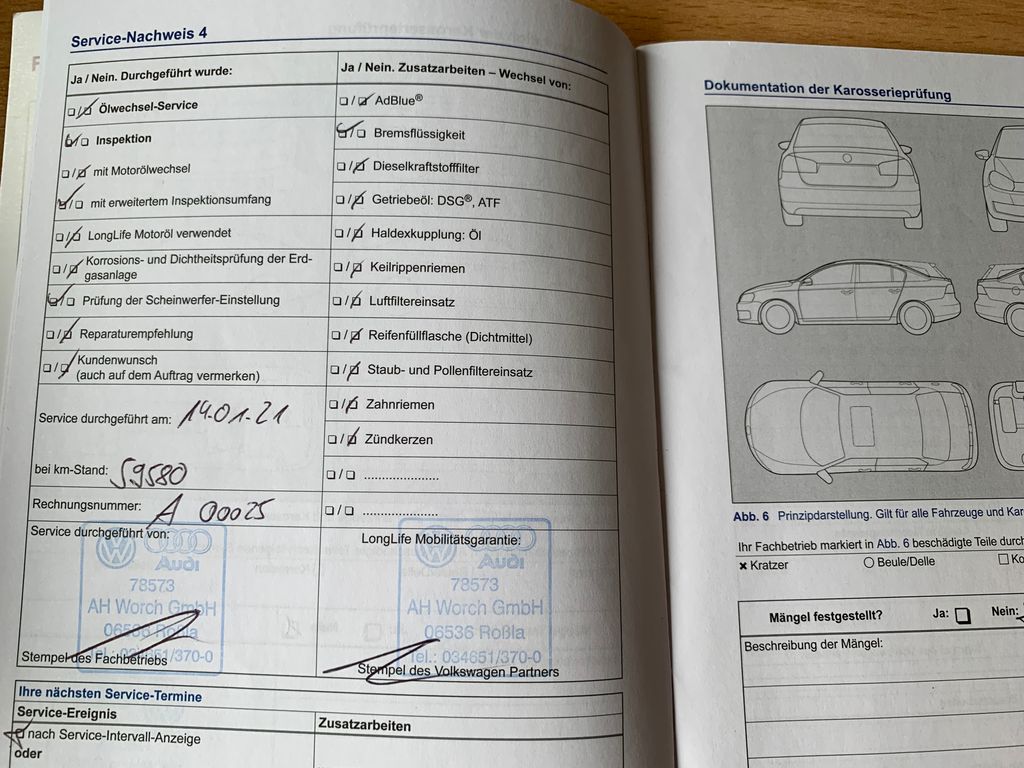 Service-Nachweis 4
Ja / Nein. Durchgeführt wurde:
Ölwechsel-Service
Inspektion
mit Motorölwechsel
mit erweitertem Inspektionsumfang
LongLife Motoröl verwendet
Korrosions- und Dichtheitsprüfung der Erd-
gasanlage
Prüfung der Scheinwerfer-Einstellung
Reparaturempfehlung
Kundenwunsch
(auch auf dem Auftrag vermerken)
Service durchgeführt am: 14.01.21
bei km-Stand: 59580
Rechnungsnummer: A 00025
Service durchgeführt von:
Audi
78573
AH Worch GmbH
06536 Roßla
Tel.: 034651/370-0
Stempel des Fachbetriebs
Ja / Nein. Zusatzarbeiten – Wechsel von:
AdBlue®
Bremsflüssigkeit
Dieselkraftstofffilter
Getriebeöl: DSG®, ATF
Haldexkupplung: Öl
Keilrippenriemen
Luftfiltereinsatz
Reifenfüllflasche (Dichtmittel)
Staub- und Pollenfiltereinsatz
Zahnriemen
Zündkerzen
LongLife Mobilitätsgarantie:
Audi
78573
AH Worch GmbH
06536 Roßla
Tel.: 034651/370-0
Stempel des Volkswagen Partners
Ihre nächsten Service-Termine
Service-Ereignis
Zusatzarbeiten
nach Service-Intervall-Anzeige
oder
Dokumentation der Karosserieprüfung
Abb. 6 Prinzipdarstellung. Gilt für alle Fahrzeuge und Kar
Ihr Fachbetrieb markiert in Abb. 6 beschädigte Teile durch
Kratzer
Beule/Delle
Ko
Mängel festgestellt? Ja: Nein:
Beschreibung der Mängel: